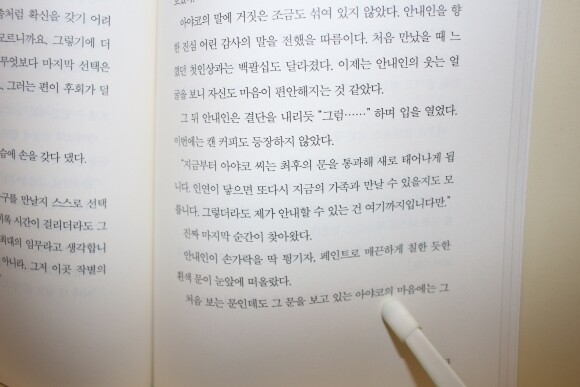 즘처럼 확신을 갖기 어려
모르니까요. 그렇기에 더
무엇보다 마지막 선택은
, 그러는 편이 후회가 덜
슴에 손을 갖다 댔다.
구를 만날지 스스로 선택
록 시간이 걸리더라도 그
최대의 임무라고 생각합니
아니라, 그저 이곳 작별의
아야코의 말에 거짓은 조금도 섞여 있지 않았다. 안내인을 향
한 진심 어린 감사의 말을 전했을 따름이다. 처음 만났을 때 느
꼈던 첫인상과는 백팔십도 달라졌다. 이제는 안내인의 웃는 얼
굴을 보니 자신도 마음이 편안해지는 것 같았다.
그 뒤 안내인은 결단을 내리듯 “그럼……” 하며 입을 열었다.
이번에는 캔 커피도 등장하지 않았다.
“지금부터 아야코 씨는 최후의 문을 통과해 새로 태어나게 됩
니다. 인연이 닿으면 또다시 지금의 가족과 만날 수 있을지도 모
릅니다. 그렇더라도 제가 안내할 수 있는 건 여기까지입니다만.”
진짜 마지막 순간이 찾아왔다.
안내인이 손가락을 딱 튕기자, 페인트로 매끈하게 칠한 듯한
흰색 문이 눈앞에 떠올랐다.
처음 보는 문인데도 그 문을 보고 있는 아야코의 마음에는 그